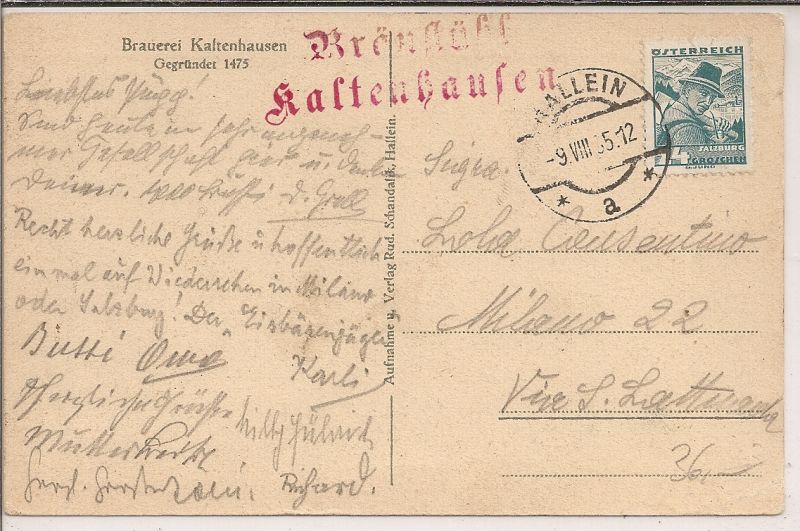 Brauerei Kaltenhausen
Gegründet 1475
Bräustübl
Kaltenhausen
HALLEIN
-9.VIII 35-12
* a *
ÖSTERREICH
SALZBURG
GROSCHEN
Liebstes
Sind heute in sehr angeneh-
mer Gesellschaft hier u. denken
Deiner. 1000 Bussi d.
Recht herzliche Grüße u hoffentlich
einmal auf Wiedersehen in Milano
oder Salzburg! Der „Eisbärenjäger
Karli
Bussi Oma
Herzliche Grüsse
Willy
Richard.
Aufnahme u. Verlag Rud. Schandalik, Hallein.
Sigra.
Lola Consentino
Milano 22
Via S.
36.-